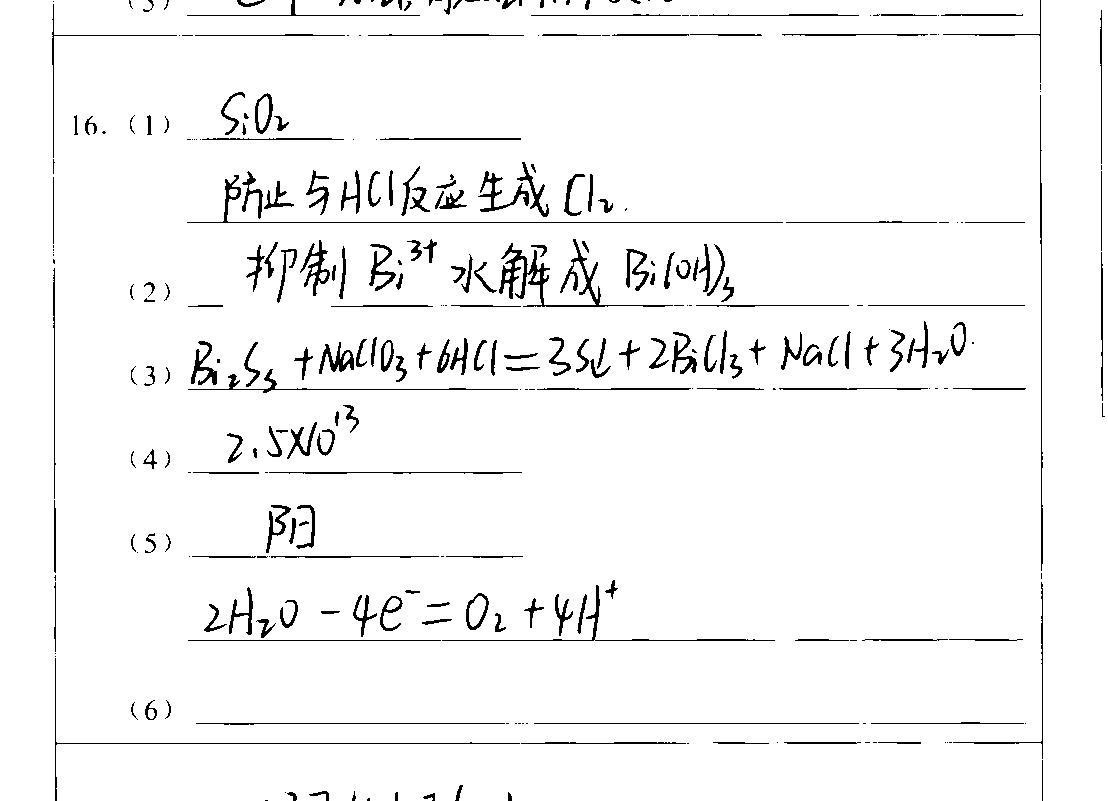 (3)
16. (1) SiO₂
防止与HCl反应生成Cl₂.
(2) 抑制Bi³⁺水解成Bi(OH)₃
(3) Bi₂S₃+NaClO₃+6HCl=3S↓+2BiCl₃+NaCl+3H₂O.
(4) 2.5×10¹³
(5) 阳
2H₂O-4e⁻=O₂+4H⁺
(6)